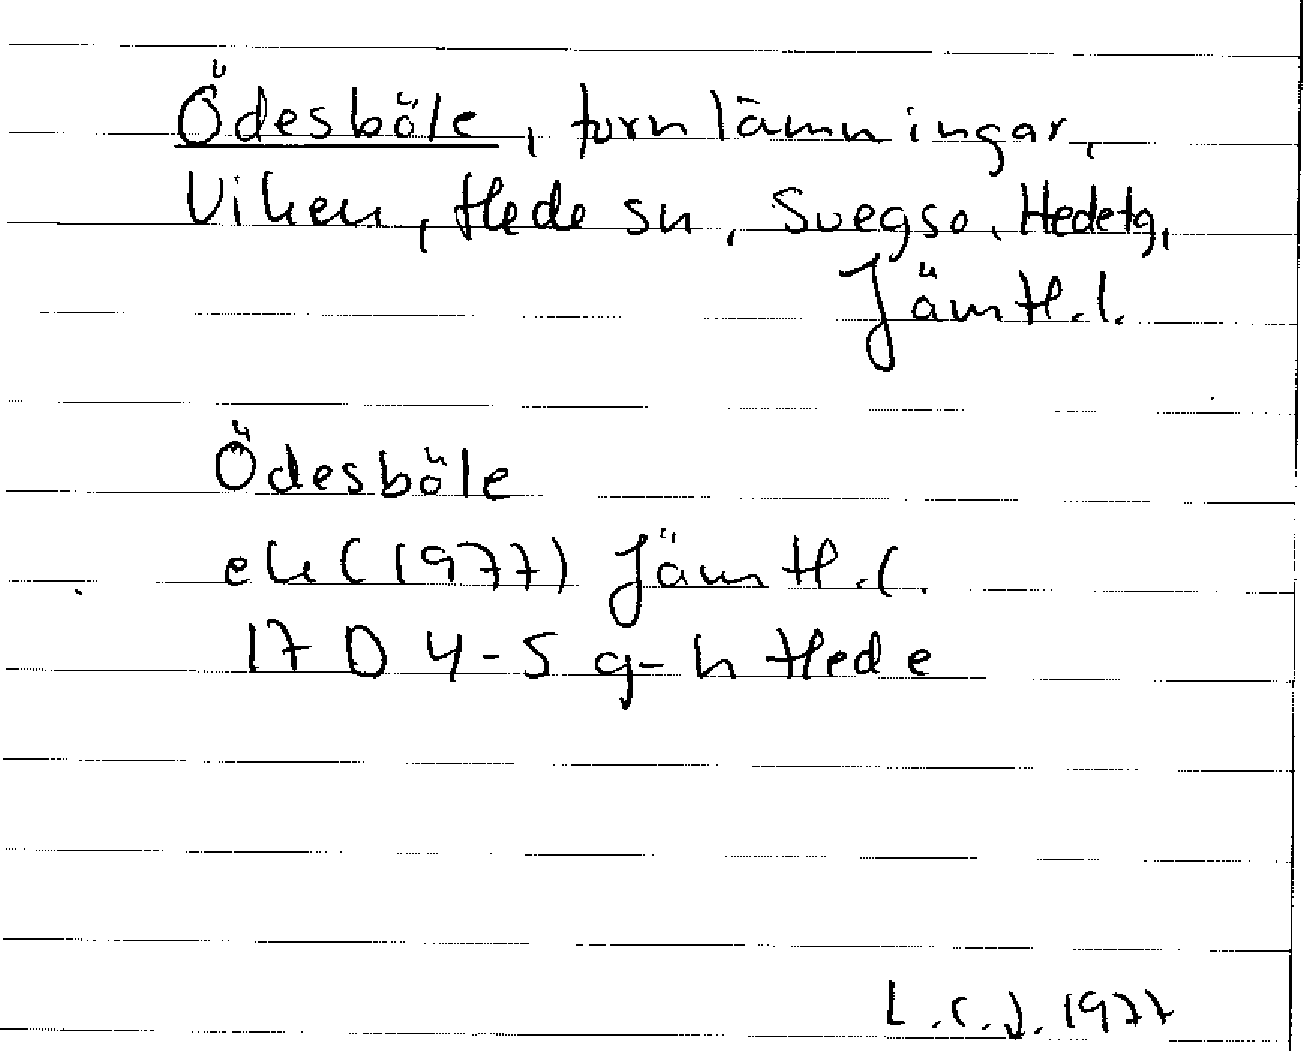 Ödesböle, fornlämningar,
Viken, Hede sn, Svegs o. Hede tg,
Jämtl. l.
Ödesböle
ek (1977) Jämtl. l.
17 D 4-5 g-h Hede
L. C. J. 1977